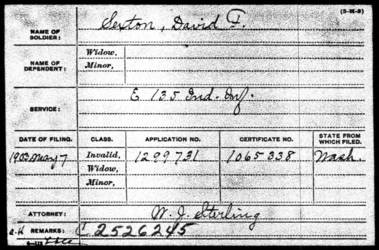 (3-15-9)
NAME OF SOLDIER: Sexton, David F.
NAME OF DEPENDENT: Widow,
Minor,
SERVICE: E 135 Ind. Inf.
DATE OF FILING. CLASS. APPLICATION NO. CERTIFICATE NO. STATE FROM WHICH FILED.
1903 May 7 Invalid, 1299731 1065338 Wash.
Widow,
Minor,
ATTORNEY: W. J. Sterling
REMARKS: 2526245